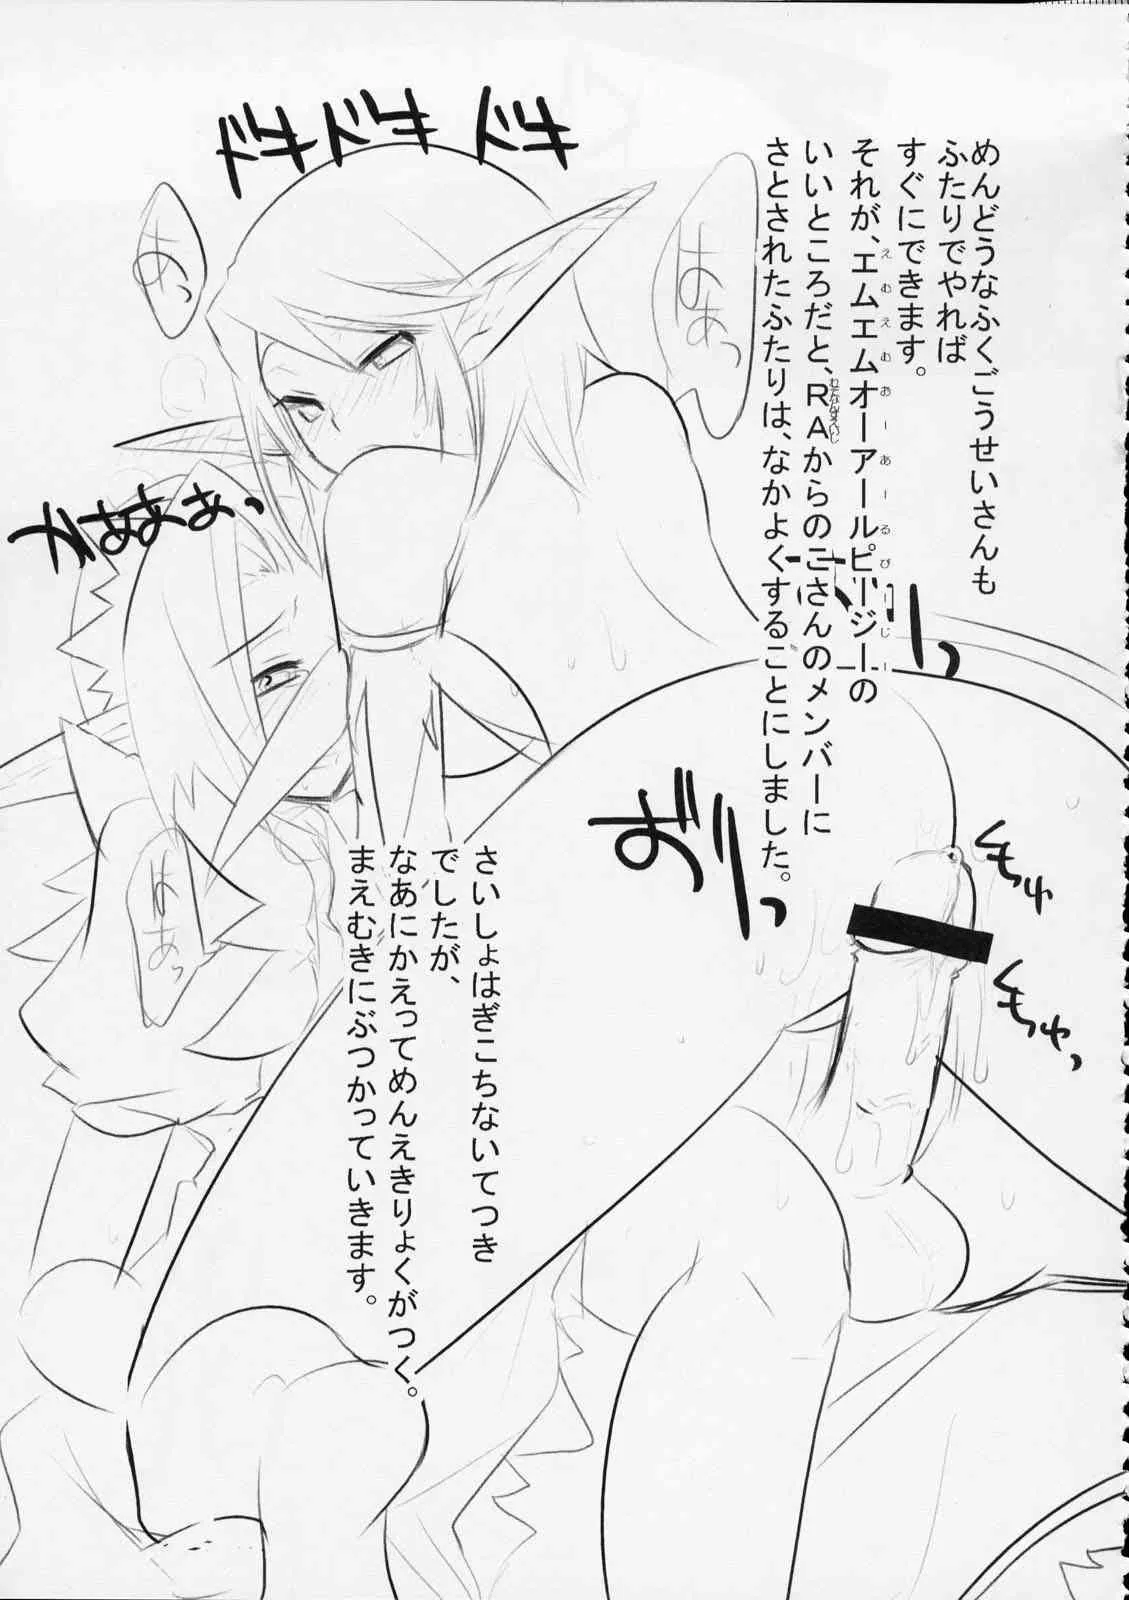 めんどうなふくごうせいさんも
ふたりでやれば
すぐにできます。
それが、エムエムオーアールピージーの
えむえむおーあーるぴーじー
いいところだと、RAからのこさんのメンバーに
さとされたふたりは、なかよくすることにしました。
さいしょはぎこちないてつき
でしたが、
なあにかえってめんえきりょくがつく。
まえむきにぶつかっていきます。
はぁっ
あっ
はあっ
もっゅ
もっゅっ